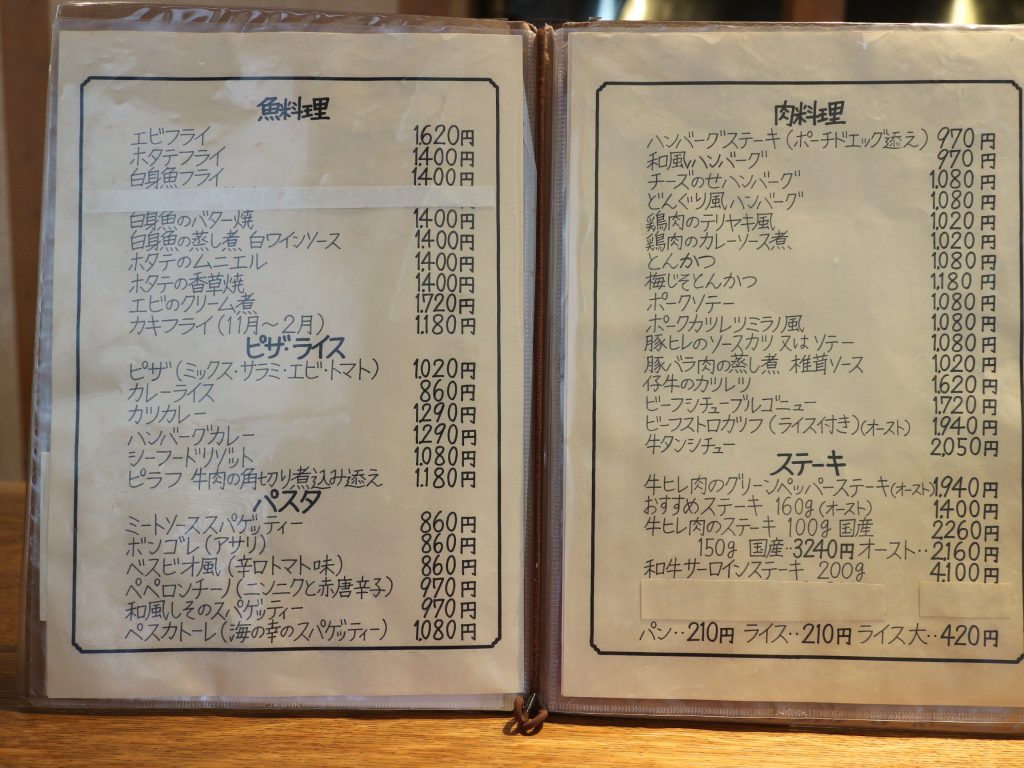 魚料理
エビフライ 1.620円
ホタテフライ 1.400円
白身魚フライ 1.400円
白身魚のバター焼 1.400円
白身魚の蒸し煮 白ワインソース 1.400円
ホタテのムニエル 1.400円
ホタテの香草焼 1.400円
エビのクリーム煮 1.720円
カキフライ (11月～2月) 1.180円
ピザ・ライス
ピザ (ミックス・サラミ・エビ・トマト) 1.020円
カレーライス 860円
カツカレー 1.290円
ハンバーグカレー 1.290円
シーフードリゾット 1.080円
ピラフ 牛肉の角切り煮込み添え 1.180円
パスタ
ミートソーススパゲッティー 860円
ボンゴレ (アサリ) 860円
ベスビオ風 (辛口トマト味) 860円
ペペロンチーノ (ニンニクと赤唐辛子) 970円
和風しそのスパゲッティー 970円
ペスカトーレ (海の幸のスパゲッティー) 1.080円
肉料理
ハンバーグステーキ (ポーチドエッグ添え) 970円
和風ハンバーグ 970円
チーズのせハンバーグ 1.080円
どんぐり風ハンバーグ 1.080円
鶏肉のテリヤキ風 1.020円
鶏肉のカレーソース煮 1.020円
とんかつ 1.080円
梅じそとんかつ 1.180円
ポークソテー 1.080円
ポークカツレツミラノ風 1.080円
豚ヒレのソースカツ 又は ソテー 1.080円
豚バラ肉の蒸し煮 椎茸ソース 1.020円
仔牛のカツレツ 1.620円
ビーフシチューブルゴニュー 1.720円
ビーフストロガノフ (ライス付き)(オースト) 1.940円
牛タンシチュー 2,050円
ステーキ
牛ヒレ肉のグリーンペッパーステーキ(オースト) 1.940円
おすすめステーキ 160g (オースト) 1.400円
牛ヒレ肉のステーキ 100g 国産 2260円
150g 国産‥3240円 オースト‥2,160円
和牛サーロインステーキ 200g 4,100円
パン‥210円 ライス‥210円 ライス大‥420円